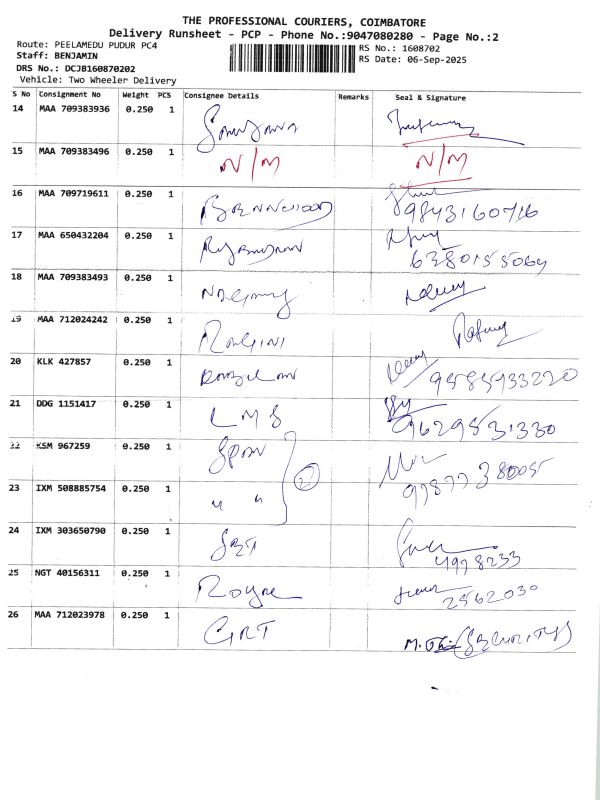 THE PROFESSIONAL COURIERS, COIMBATORE
Delivery Runsheet - PCP - Phone No.:9047080280 - Page No.:2
Route: PEELAMEDU PUDUR PC4
RS No.: 1608702
Staff: BENJAMIN
RS Date: 06-Sep-2025
DRS No.: DCJB160870202
Vehicle: Two Wheeler Delivery
S No Consignment No Weight PCS Consignee Details Remarks Seal & Signature
14 MAA 709383936 0.250 1
15 MAA 709383496 0.250 1 N/M N/M
16 MAA 709719611 0.250 1 9843160716
17 MAA 650432204 0.250 1 6380155064
18 MAA 709383493 0.250 1
19 MAA 712024242 0.250 1 Ragini
20 KLK 427857 0.250 1 9585933220
21 DDG 1151417 0.250 1 LMS 9629531330
22 KSM 967259 0.250 1
23 IXM 508885754 0.250 1 " " 2
24 IXM 303650790 0.250 1 4998233
25 NGT 40156311 0.250 1 2562030
26 MAA 712023978 0.250 1 GRT (SECURITY)